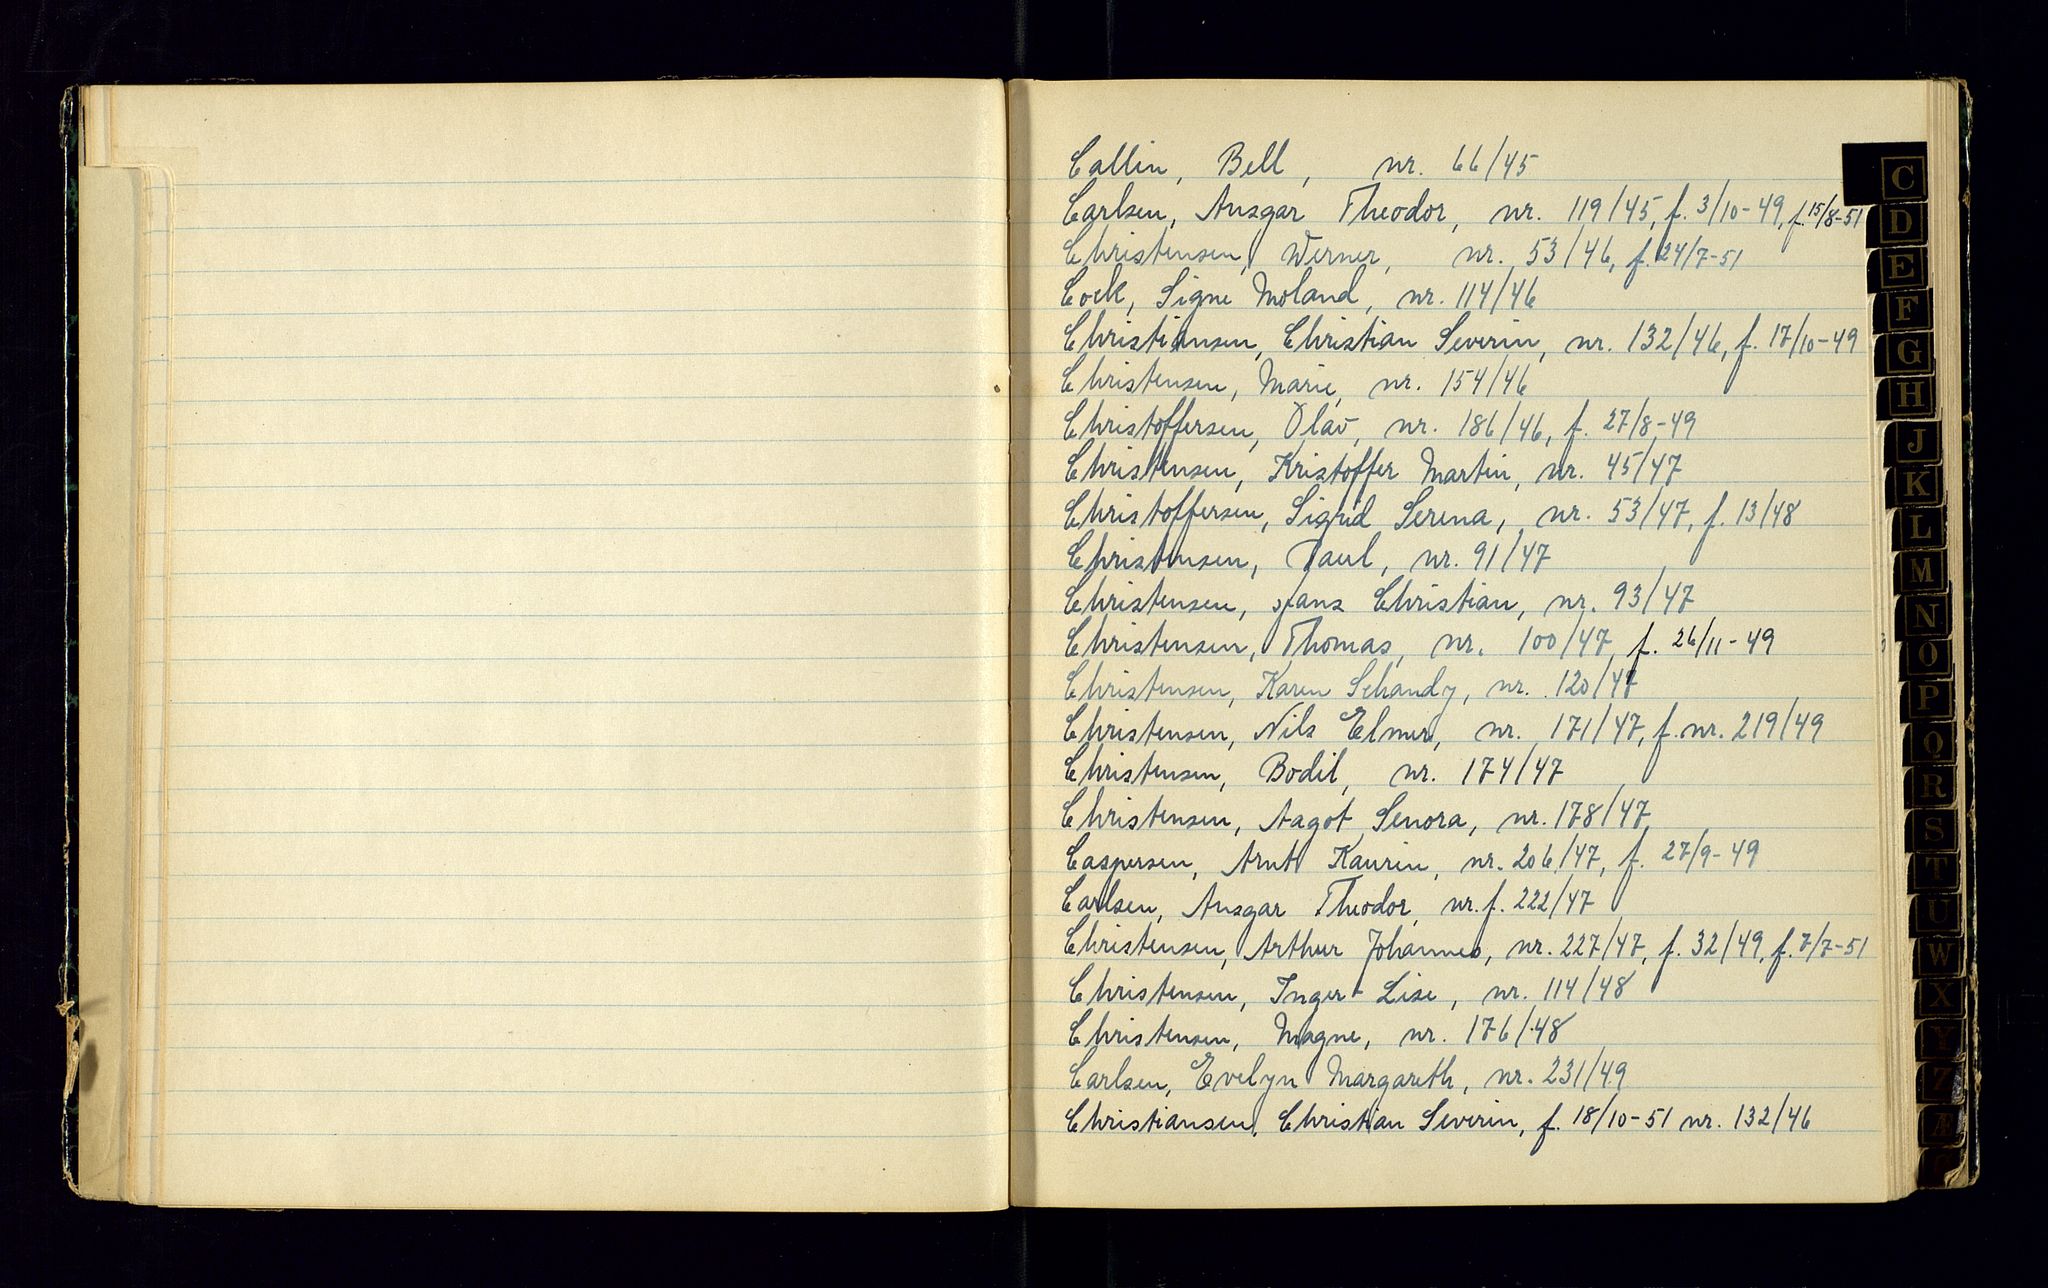 Callin, Bell, nr. 66/45
Carlsen, Ansgar Theodor, nr. 119/45, f. 3/10-49, f. 15/8-51
Christensen, Werner, nr. 53/46, f. 24/7-51
Cock, Signe Moland, nr. 114/46
Christiansen, Christian Severin, nr. 132/46, f. 17/10-49
Christensen, Marie, nr. 154/46
Christoffersen, Olav, nr. 186/46, f. 27/8-49
Christensen, Kristoffer Martin, nr. 45/47
Christoffersen, Sigrid Serena, nr. 53/47, f. 13/48
Christensen, Paul, nr. 91/47
Christensen, Hans Christian, nr. 93/47
Christensen, Thomas, nr. 100/47, f. 26/11-49
Christensen, Karen Schandy, nr. 120/47
Christensen, Nils Elmer, nr. 171/47, f. nr. 219/49
Christensen, Bodil, nr. 174/47
Christensen, Aagot Senora, nr. 178/47
Caspersen, Arnt Kaurin, nr. 206/47, f. 27/9-49
Carlsen, Ansgar Theodor, nr. f. 222/47
Christensen, Arthur Johannes, nr. 227/47, f. 32/49, f. 7/7-51
Christensen, Inger-Lise, nr. 114/48
Christensen, Magne, nr. 176/48
Carlsen, Evelyn Margareth, nr. 231/49
Christiansen, Christian Severin, f. 18/10-51 nr. 132/46
C
D
E
F
G
H
J
K
L
M
N
O
P
Q
R
S
T
U
W
X
Y
Z
Æ